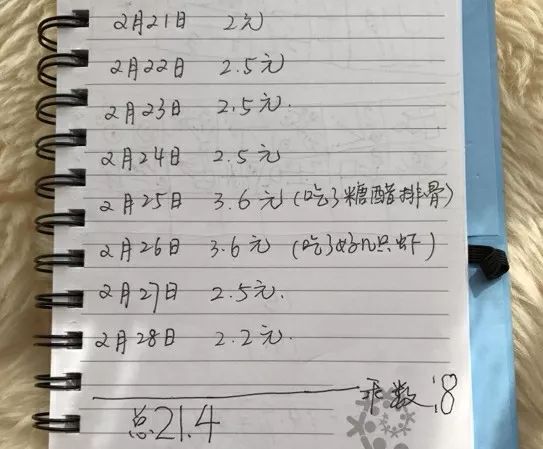 2月21日 2元
2月22日 2.5元
2月23日 2.5元.
2月24日 2.5元
2月25日 3.6元(吃了糖醋排骨)
2月26日 3.6元(吃了好几只虾)
2月27日 2.5元.
2月28日 2.2元.
天数:8
总21.4